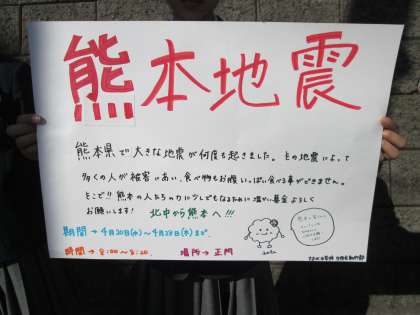 熊本地震
熊本県で大きな地震が何度も起きました。その地震によって
多くの人が被害にあい、食べ物もお腹いっぱい食べる事ができません。
そこで!! 熊本の人たちの力に少しでもなるために温かい募金よろしく
お願いします! 北中から熊本へ!!!
期間→4月20日(水)〜4月28日(木)まで
時間→8:00〜8:20 場所→正門